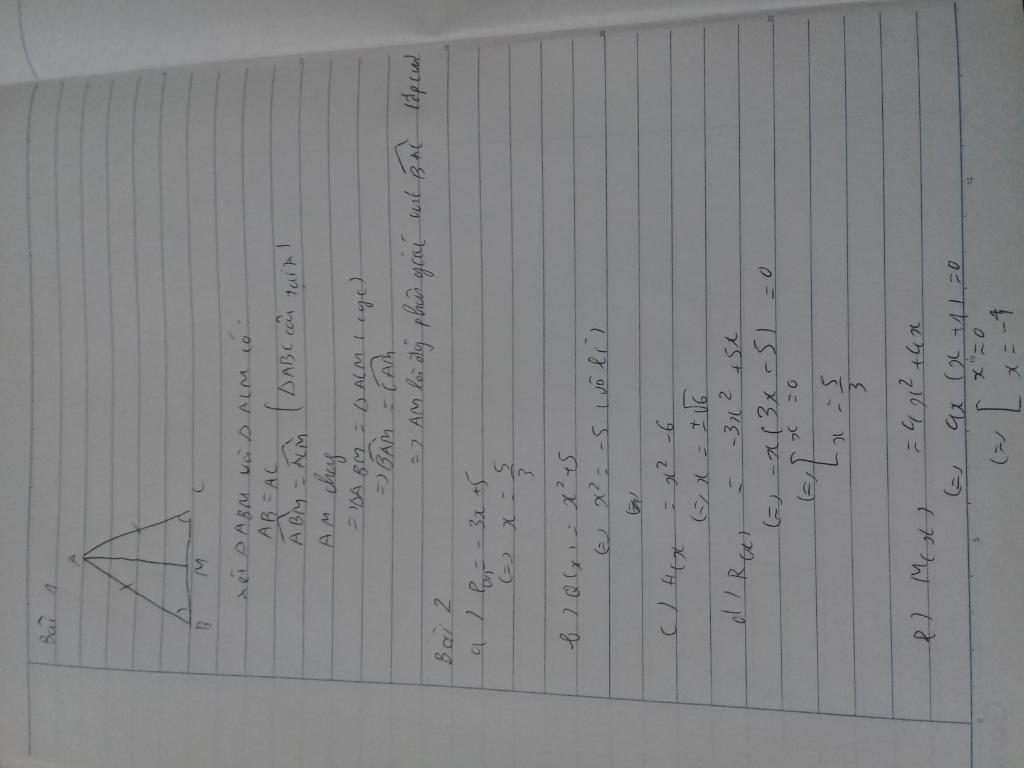 Bài 1
A
B M C
Xét ΔABM và ΔACM có:
AB = AC
ABM = ACM (ΔABC cân tại A)
AM chung
=> ΔABM = ΔACM (cgc)
=> BAM = CAM
=> AM là phân giác
Bài 2
a) P(x) = -3x + 5
(=) x = 5/3
b) Q(x) = x² + 5
(=) x² = -5 (vô lí)
c) H(x) = x² - 6
(=) x = ±√6
d) R(x) = -3x² + 5x
(=) -x(3x - 5) = 0
(=) [ x = 0
[ x = 5/3
e) M(x) = 4x² + 4x
(=) 4x(x + 1) = 0
(=) [ x = 0
x = -1